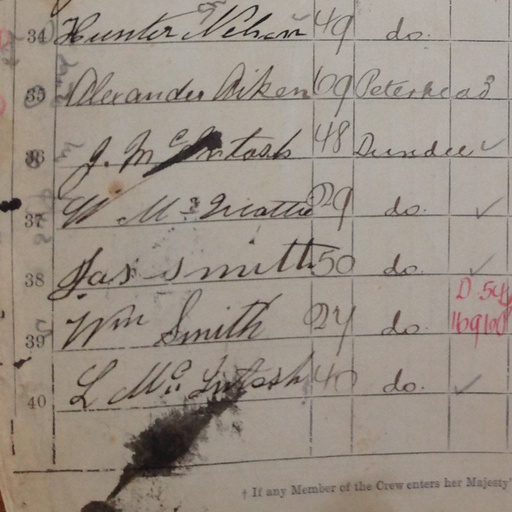 34 Hunter Nelson 49 do.
35 Alexander Aiken 69 Peterhead
36 J. McIntosh 48 Dundee ✓
37 W Mc 29 do. ✓
38 Jas Smith 50 do. ✓
39 Wm Smith 24 do. D.54 169100
40 L McIntosh 40 do. ✓
† If any Member of the Crew enters her Majesty'